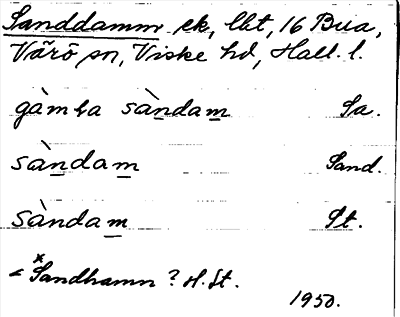 Sanddamm ek, lbt, 16 Bua,
Värö sn, Viske hd, Hall. l.
gàmba sàndam Sa.
sàndam Sand.
sàndam St.
< *Sandhamn? H. St.
1950.